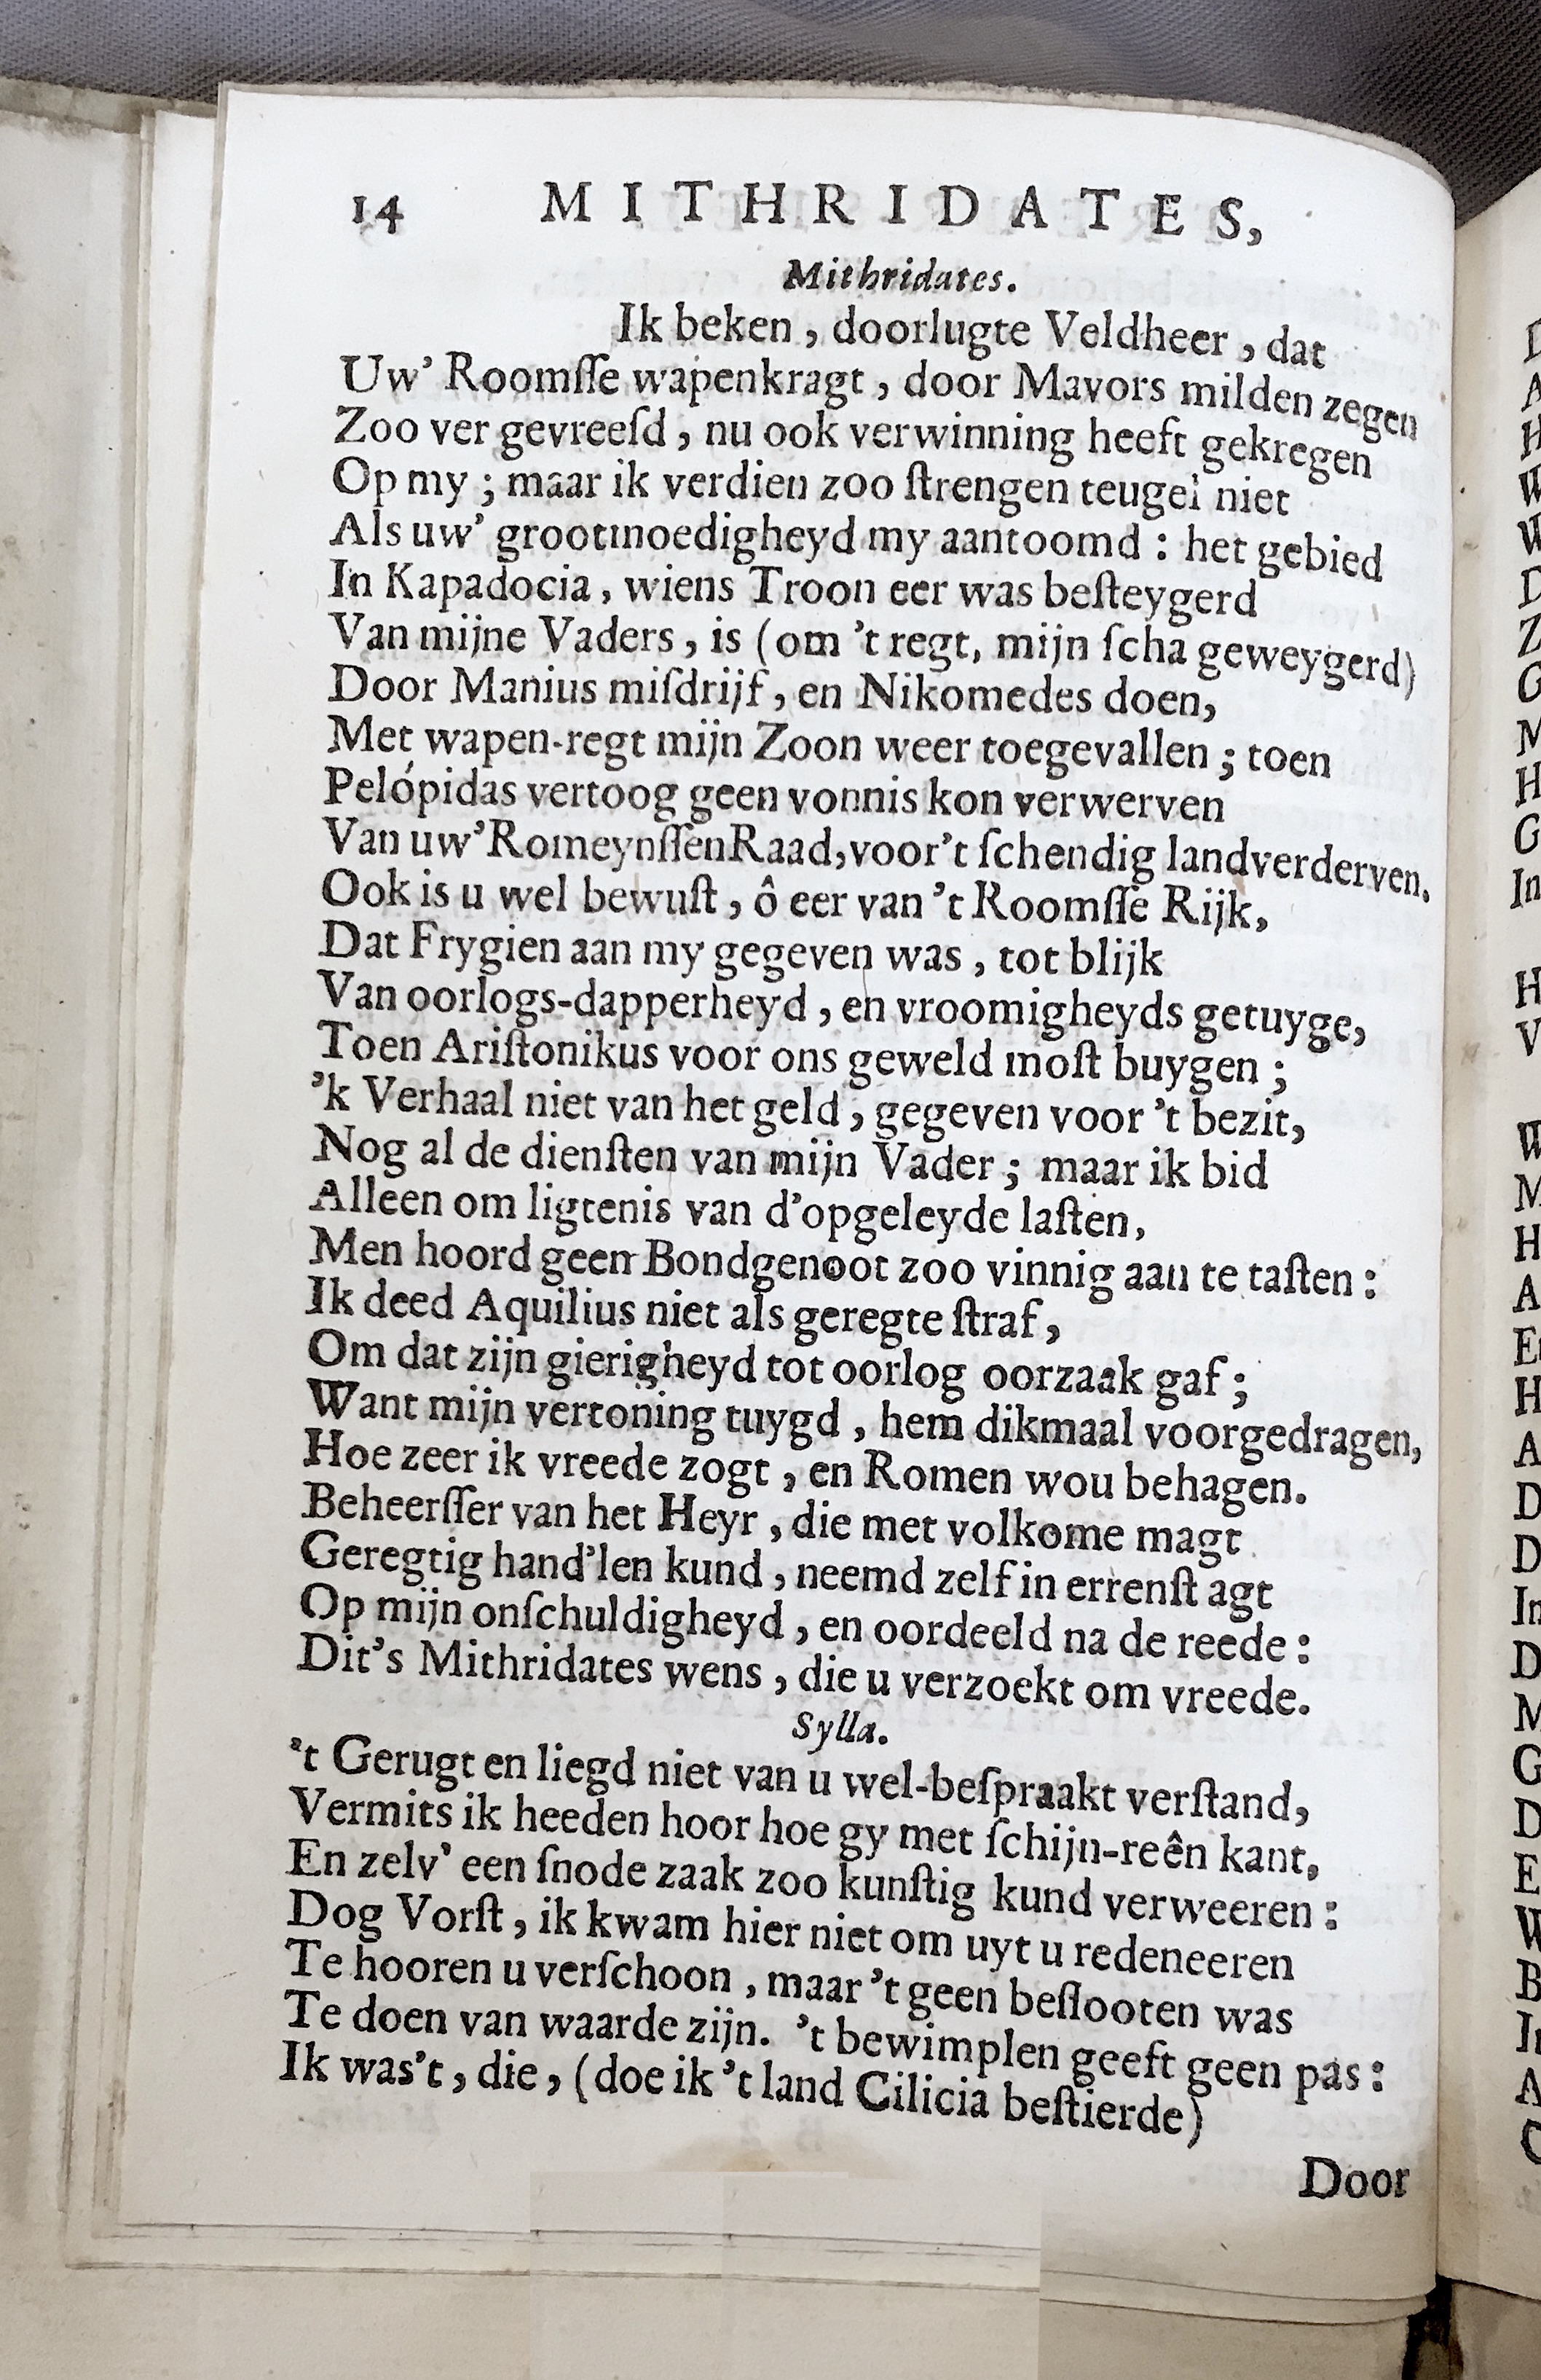 14 MITHRIDATES,
Mithridates.
Ik beken, doorlugte Veldheer, dat
Uw' Roomſſe wapenkragt, door Mavors milden zegen
Zoo ver gevreeſd, nu ook verwinning heeft gekregen
Op my; maar ik verdien zoo ſtrengen teugel niet
Als uw' grootmoedigheyd my aantoomd: het gebied
In Kapadocia, wiens Troon eer was beſteygerd
Van mijne Vaders, is (om 't regt, mijn ſcha geweygerd)
Door Manius miſdrijf, en Nikomedes doen,
Met wapen-regt mijn Zoon weer toegevallen; toen
Pelópidas vertoog geen vonnis kon verwerven
Van uw' Romeynſſen Raad, voor't ſchendig landverderven.
Ook is u wel bewuſt, ô eer van 't Roomſſe Rijk,
Dat Frygien aan my gegeven was, tot blijk
Van oorlogs-dapperheyd, en vroomigheyds getuyge,
Toen Ariſtonikus voor ons geweld moſt buygen;
'k Verhaal niet van het geld, gegeven voor 't bezit,
Nog al de dienſten van mijn Vader; maar ik bid
Alleen om ligtenis van d'opgeleyde laſten,
Men hoord geen Bondgenoot zoo vinnig aan te taſten:
Ik deed Aquilius niet als geregte ſtraf,
Om dat zijn gierigheyd tot oorlog oorzaak gaf;
Want mijn vertoning tuygd, hem dikmaal voorgedragen,
Hoe zeer ik vreede zogt, en Romen wou behagen.
Beheerſſer van het Heyr, die met volkome magt
Geregtig hand'len kund, neemd zelf in errenſt agt
Op mijn onſchuldigheyd, en oordeeld na de reede:
Dit's Mithridates wens, die u verzoekt om vreede.
Sylla.
't Gerugt en liegd niet van u wel-beſpraakt verſtand,
Vermits ik heeden hoor hoe gy met ſchijn-reên kant,
En zelv' een ſnode zaak zoo kunſtig kund verweeren:
Dog Vorſt, ik kwam hier niet om uyt u redeneeren
Te hooren u verſchoon, maar 't geen beſlooten was
Te doen van waarde zijn. 't bewimplen geeft geen pas:
Ik was't, die, (doe ik 't land Cilicia beſtierde)
Door